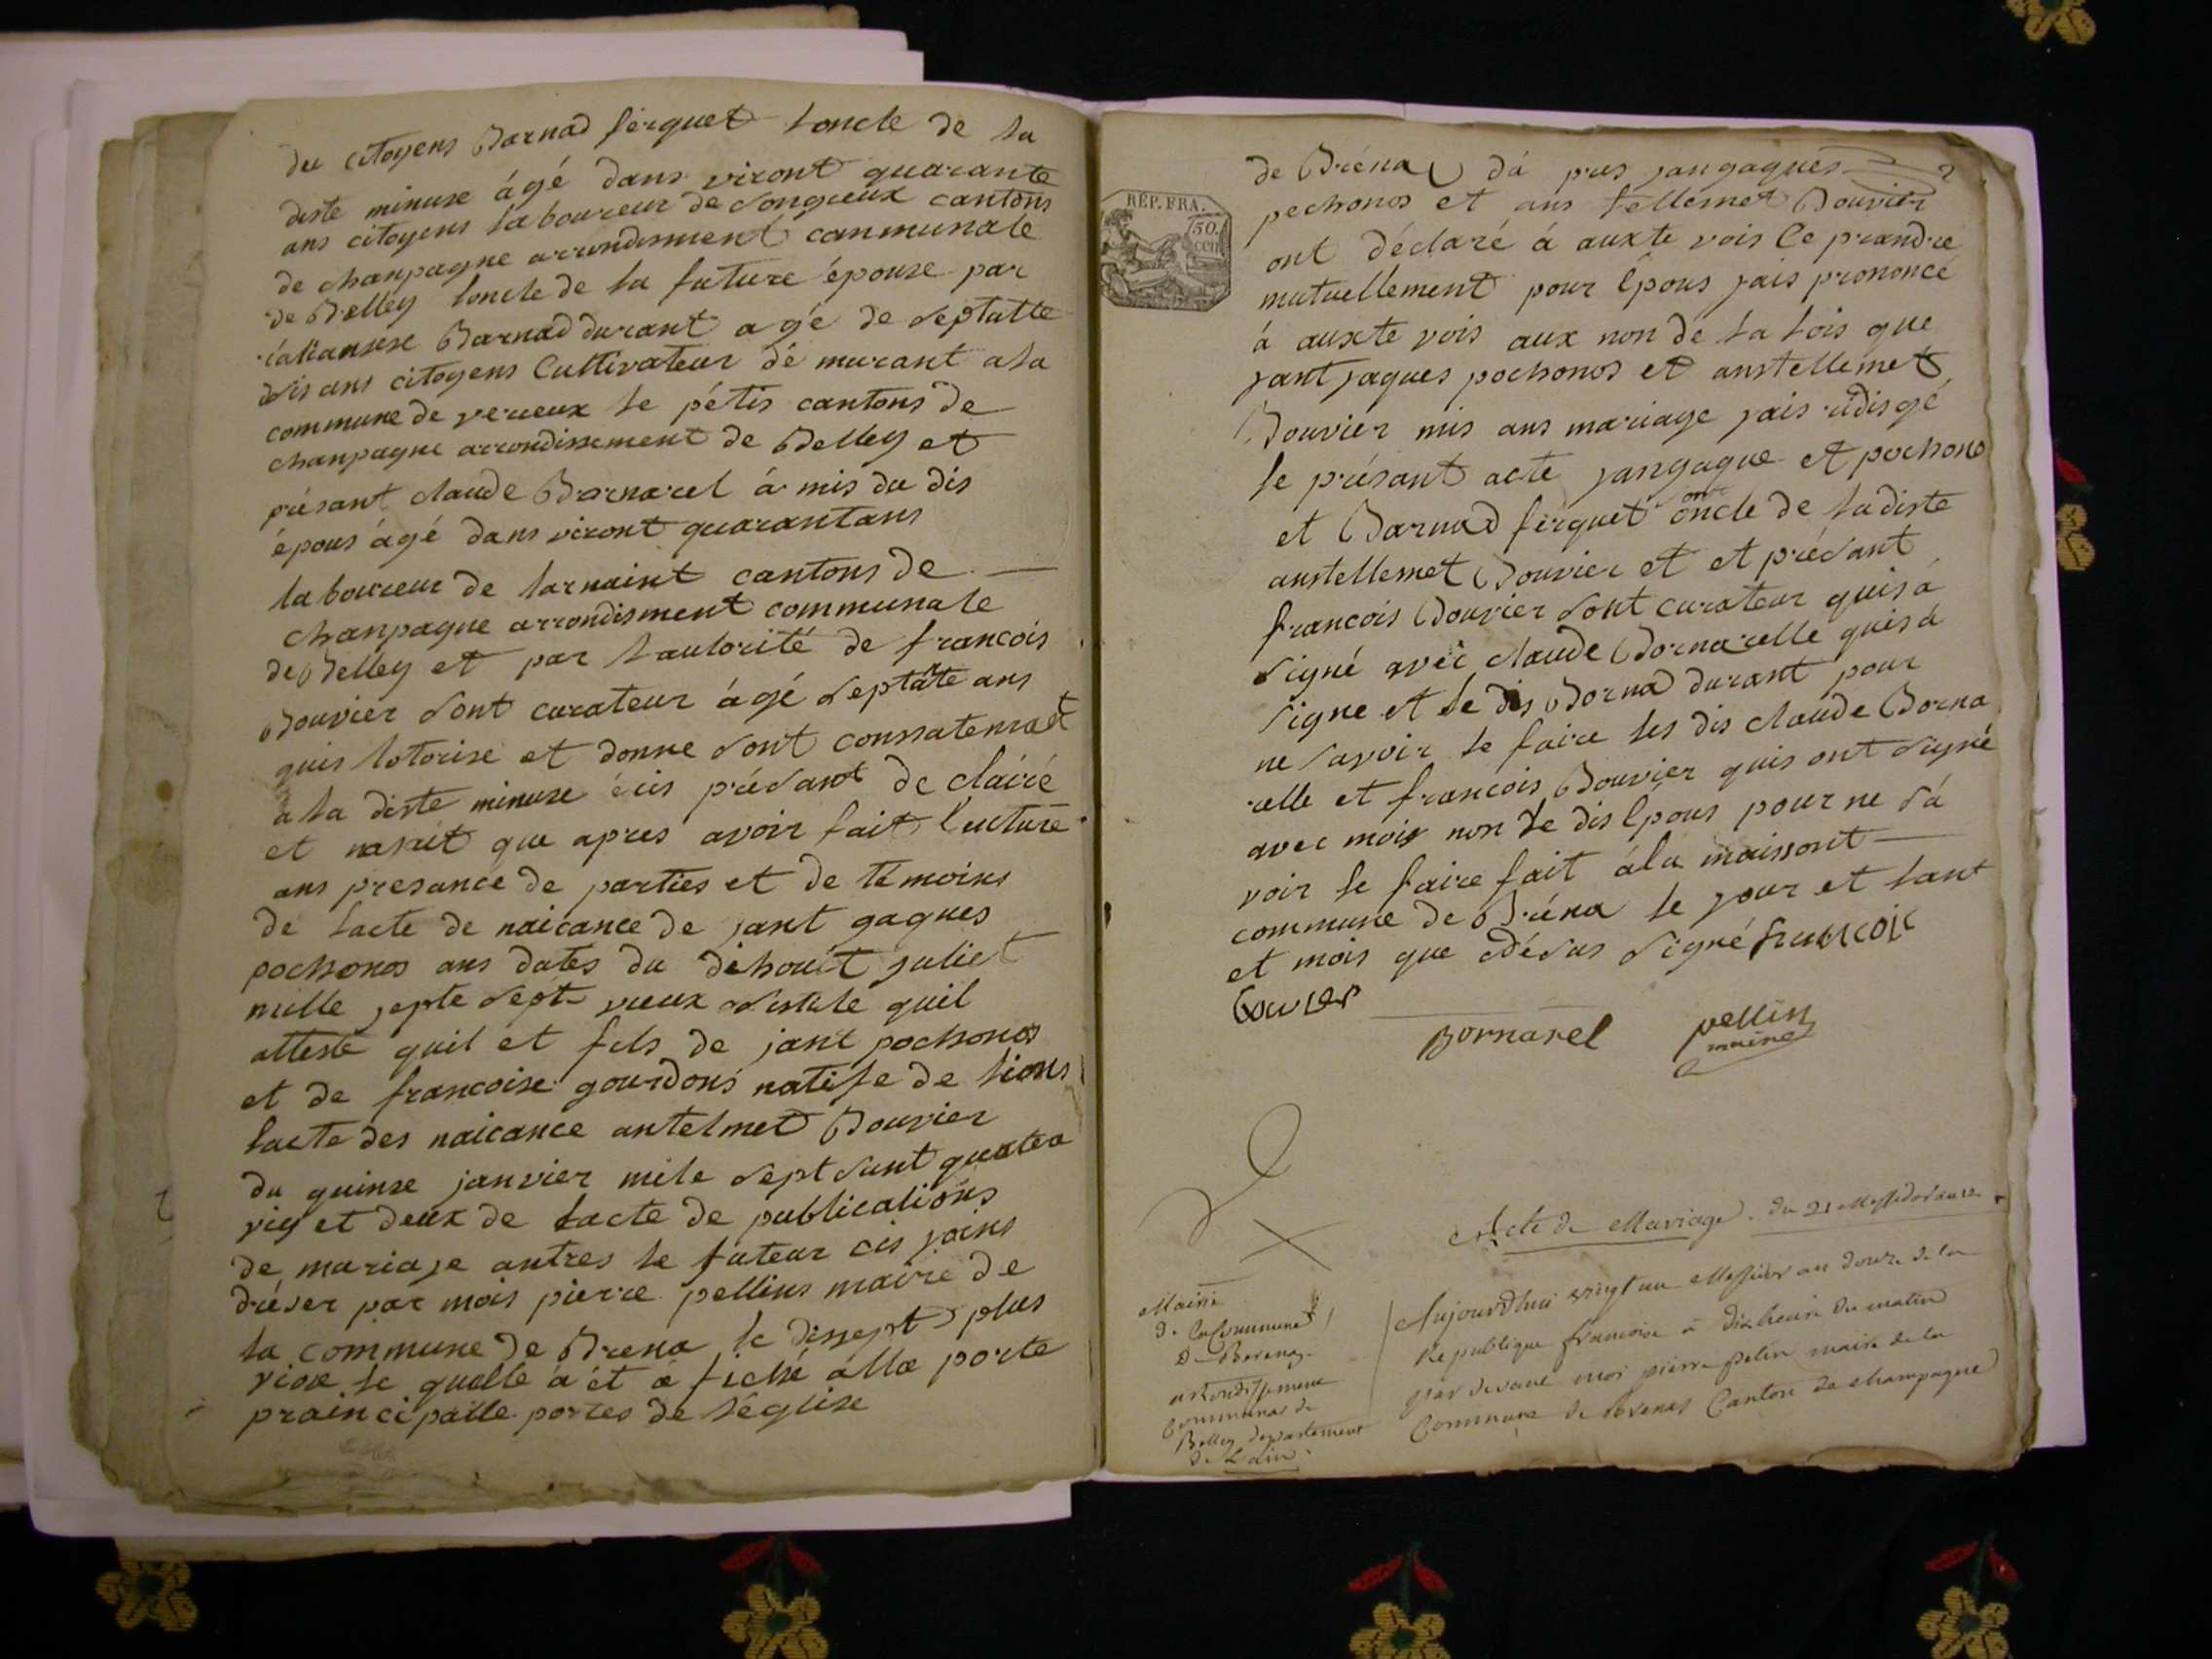 du citoyens Barnad ferquet loncle de la
diste minuse âgé dans viront quarante
ans citoyens laboureur de Songieux cantons
de chanpagne arrondisment communale
de Belley loncle de la future épouse par
Barnad durant agé de septatte
dis ans citoyens Cultivateur dé murant a la
commune de verieux le pétis cantons de
chanpagne arrondissement de Belley et
présant claude Barnarel á mis du dis
épous ágé dans viront quarantans
laboureur de larnaint cantons de
chanpagne arrondisment communale
de Belley et par lautorité de francois
Bouvier sont curateur ágé septante ans
quis lotorise et donne sont
a la diste minuse présant de clairé
et que apres avoir fait lecture
ans presance de parties et de témoins
de lacte de naicance de jant gaques
pochonos ans dates du dehouit juliet
mille septe sept quil
atteste quil et fils de jant pochonos
et de francoise gourdons natife de lions
lacte des naicance antelmet Bouvier
du quinse janvier mile sept sant quater
vig et deux de lacte de publications
de mariage antres le futeur cis joins
dréser par mois pierre pellins maire de
la commune de Brena le dissept plus
viox le qualle á ét á fiché álla porte
prainci palle portes de léglise
RÉP. FRA.
50.
cen
de Bréna dá pres jangaques
pechonos et ans tellemet Bouvier
ont déclaré á auxte vois Ce prandre
mutuellement pour Épous jais prononcé
á auxte vois aux non de la lois que
jant jaques pochonos et anstellemet
Bouvier mis ans mariage jais rédisgé
le présant acte jangaque et pochono
et Barnad ferquet oncle de ladiste
anstellemet Bouvier et et présant
francois Bouvier sont curateur quis á
signé avec claude Bornarelle quis á
signe et le dis Bornad durant pour
ne savoir le faire les dis claude Borna
relle et francois Bouvier quis ont signé
avec mois non le dis Épous pour ne sá
voir le faire fait ála maissont
commune de Bréna le jour et lant
et mois que dédus signé francois
Bouvier
Bornarel pellin
maire
Acte de Mariage. du 21 Messidor an 12
Mairie
de la Commune
De Brenaz
arrondissement
Communal de
Belley département
de L'ain.
Aujourdhui vingt un Messidor an douze de la
République francoise à dix heure du matin
par devant moi pierre pelin maire de la
Commune de Brenas Canton de champagne